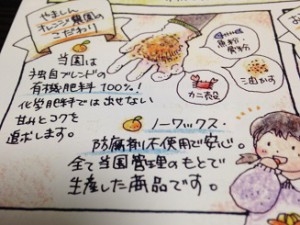 やましん
オレンジ農園の
こだわり
当園は
独自ブレンドの
有機肥料100%!
化学肥料では出せない
甘みとコクを
追求します。
魚粉
骨粉
カニ殻
油かす
ノーワックス・
防腐剤不使用で安心。
全て当園管理のもとで
生産した商品です。